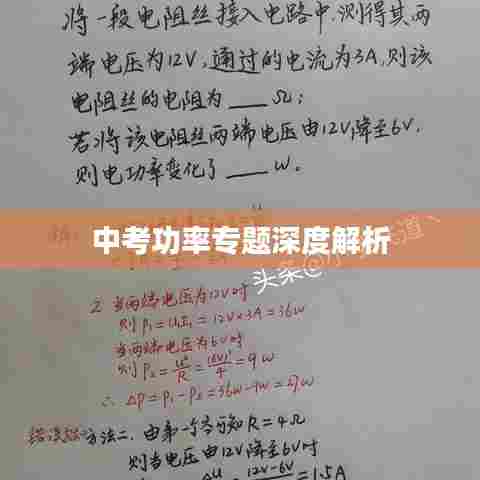 将一段电阻丝接入电路中,测得其两
端电压为12V,通过的电流为3A,则该
电阻丝的电阻为___Ω;
若将该电阻丝两端电压由12V降至6V,
则电功率变化了___W。
中考功率专题深度解析
头条@
2 当两端电压为12V时
则P₁=U₁I₁=12V×3A=36W
当两端电压为6V时
则P₂=U²/R=(6V)²/4=9W
∴ΔP=P₁-P₂=36W-9W=27W
方法二、由第一个可知R=4Ω
则当电压由12V降至6V时
12V-6V
=1.5A